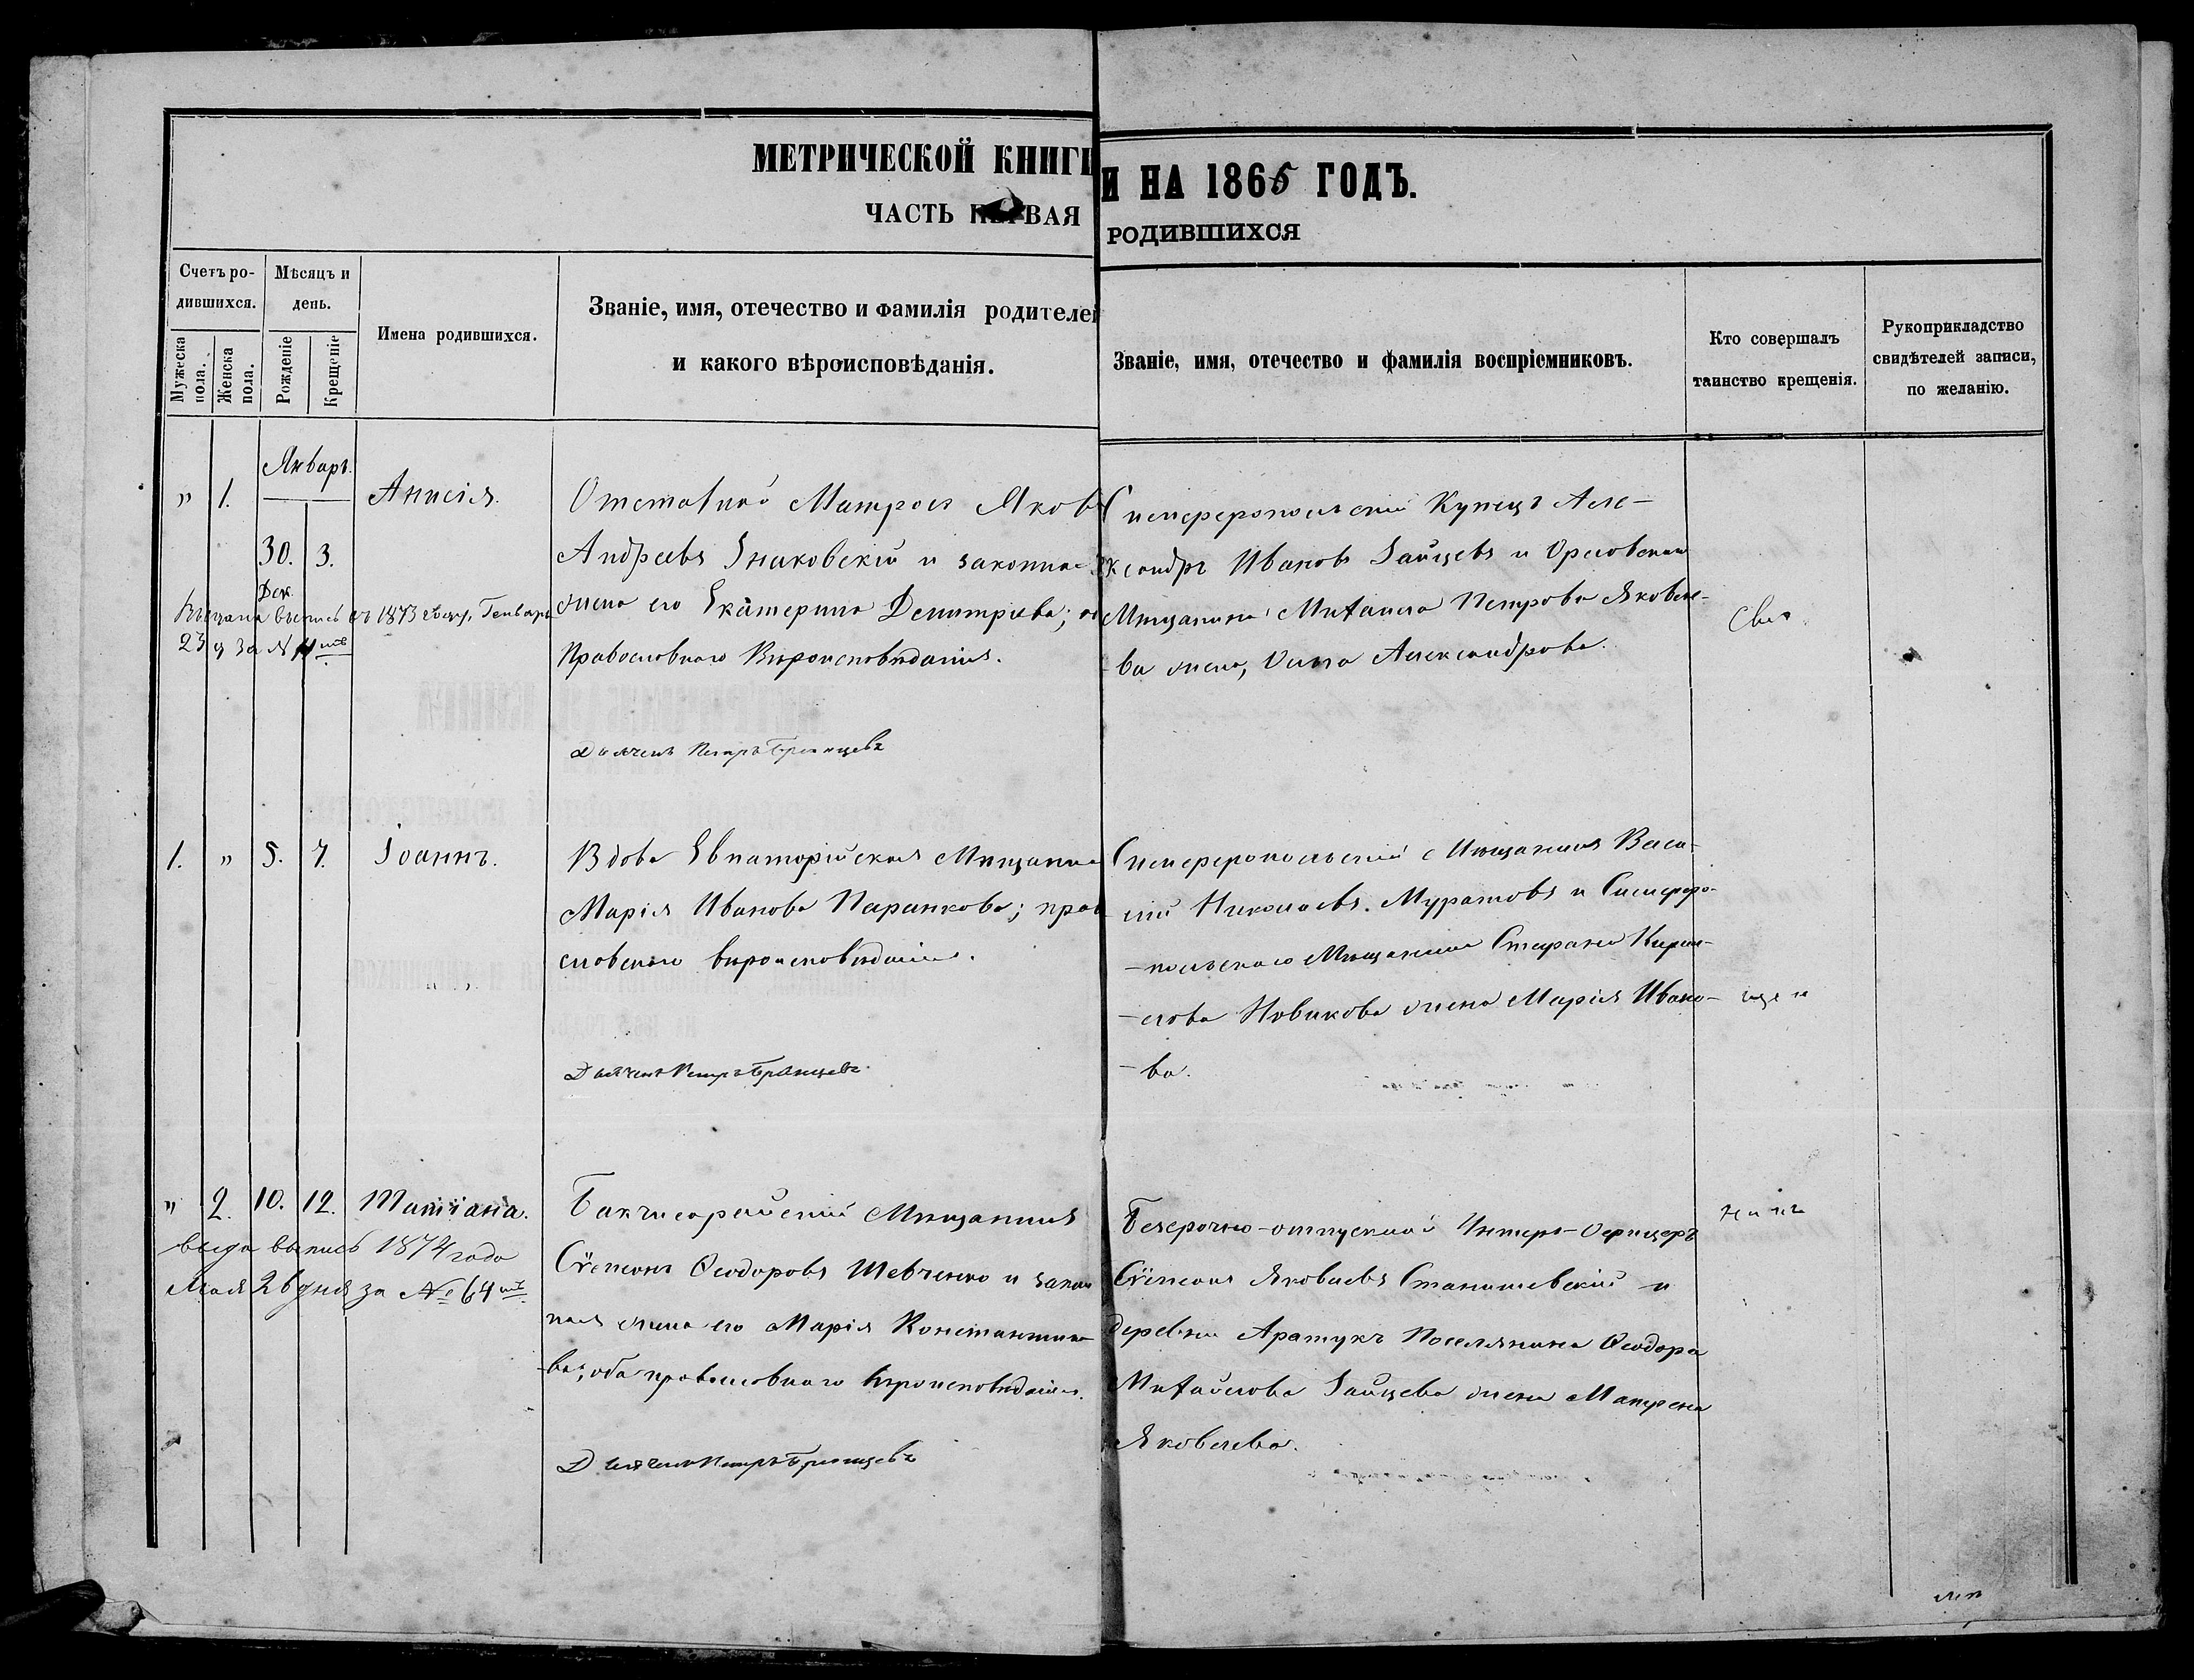 МЕТРИЧЕСКОЙ КНИГИ НА 1865 ГОДЪ.
ЧАСТЬ ПЕРВАЯ РОДИВШИХСЯ
Счетъ родившихся.
Мужеска пола.
Женска пола.
Мѣсяцъ и день.
Рожденіе
Крещеніе
Имена родившихся.
Званіе, имя, отечество и фамилія родителей
и какого вѣроисповѣданія.
Званіе, имя, отечество и фамилія воспріемниковъ.
Кто совершалъ
таинство крещенія.
Рукоприкладство
свидѣтелей записи,
по желанію.
Январь.
" 1. 30. Дек. 3. Анисія.
Отставной Матросъ Яковъ
Андреевъ Знаковскій и законная
жена его Екатерина Демитріева; оба
Православнаго Вѣроисповѣданія.
Симферопольскій Купецъ Але-
ксандръ Ивановъ Зайцевъ и Орловскаго
Мѣщанина Михаила Петрова Яковле-
ва жена, Ольга Александрова.
Выдана выпись въ 1873 году, Генваря
23 д за № 4
Дьячекъ Петръ Бранцевъ
Свя
1. " 5. 7. Іоаннъ.
Вдова Евпаторійская Мѣщанка
Марія Иванова Паранкова; прав
славнаго вѣроисповѣданія.
Симферопольскій Мѣщанинъ Васи-
лій Николаевъ Муратовъ и Симферо-
-польскаго Мѣщанина Стефана Кирил-
-лова Новикова жена Марія Ивано-
-ва.
Дьячекъ Петръ Бранцевъ.
щен
" 2. 10. 12. Татіана.
Бахчисарайскій Мѣщанинъ
Сѵмеонъ Ѳеодоровъ Шевченко и закон
ная жена его Марія Константино-
-ва; оба православнаго вѣроисповѣданія.
Безсрочно-отпускной Унтеръ-Офицеръ
Сѵмеонъ Яковлевъ Станишевскій и
деревни Аратукъ Поселянина Ѳеодора
Михайлова Зайцева жена Матрена
Яковлева.
выда выпись 1874 года
Мая 26 дня за № 64
Дьячекъ Петръ Бранцевъ
никъ